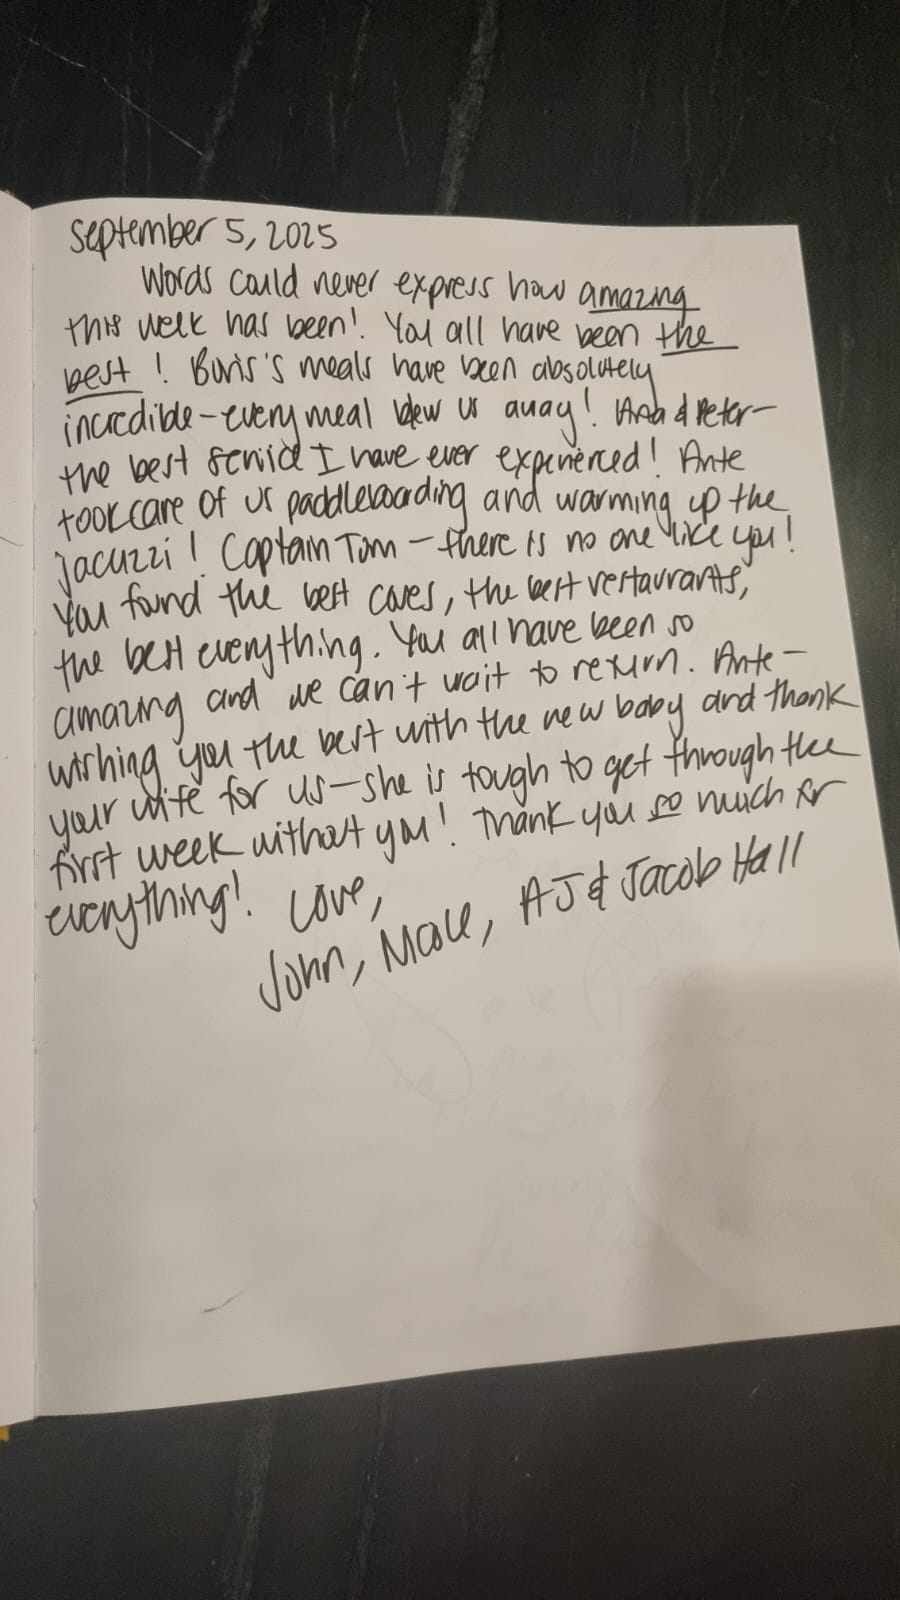 September 5, 2025
Words could never express how amazing
this week has been! You all have been the
best! Boris's meals have been absolutely
incredible - every meal blew us away! Ana & Peter -
the best service I have ever experienced! Ante
took care of us paddleboarding and warming up the
jacuzzi! Captain Tom - there is no one like you!
You found the best caves, the best restaurants,
the best everything. You all have been so
amazing and we can't wait to return. Ante -
wishing you the best with the new baby and thank
your wife for us - she is tough to get through the
first week without you! Thank you so much for
everything! Love,
John, Nicole, AJ & Jacob Hall